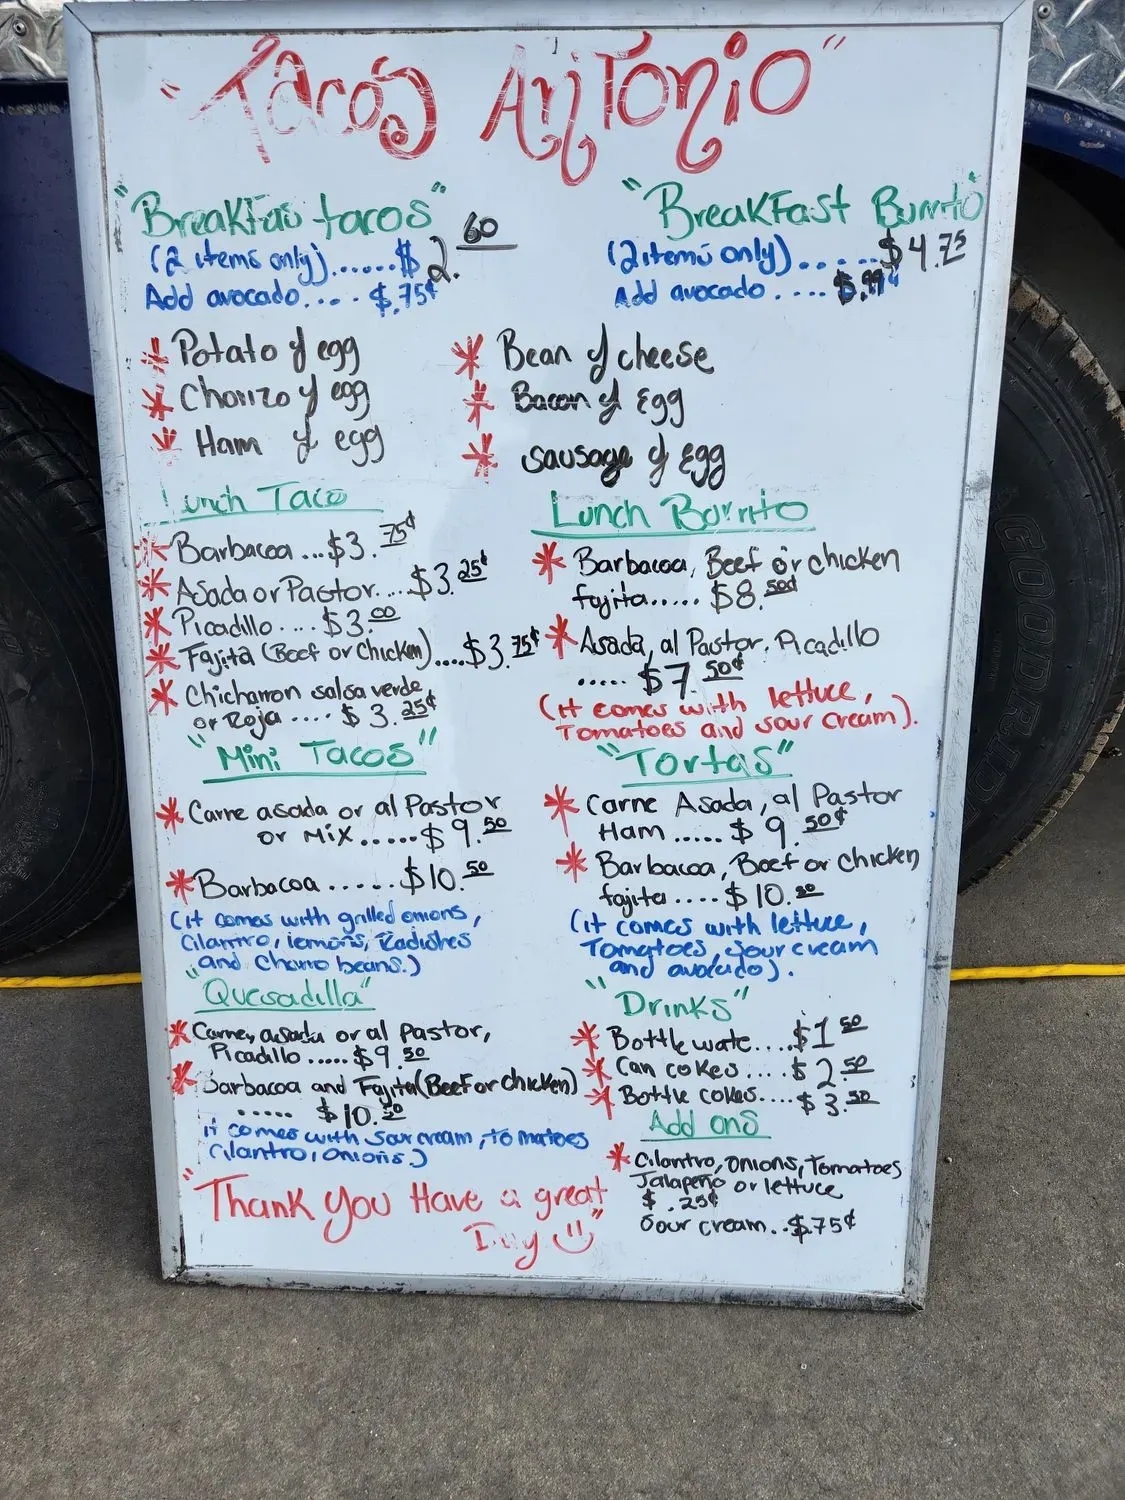 "Tacos Antonio"
"Breakfas tacos"
(2 items only)......$2.60
Add avocado.... $.75¢
"Breakfast Burrito"
(2 items only).....$4.75
Add avocado.... $.99¢
* Potato y egg
* Chorizo y egg
* Ham y egg
* Bean y cheese
* Bacon y Egg
* Sausage y Egg
Lunch Taco
* Barbacoa...$3.75¢
* Asada or Pastor....$3.25¢
* Picadillo....$3.00
* Fajita (Beef or chicken)....$3.75¢
* Chicharron salsa verde
or Roja....$3.25¢
Lunch Burrito
* Barbacoa, Beef or chicken
fajita.....$8.50¢
* Asada, al Pastor, Picadillo
.....$7.50¢
(it comes with lettuce,
Tomatoes and sour cream).
"Mini Tacos"
* Carne asada or al Pastor
or Mix.....$9.50
* Barbacoa.....$10.50
(it comes with grilled onions,
cilantro, lemons, Radishes
and Charro beans.)
"Tortas"
* Carne Asada, al Pastor
Ham.....$9.50¢
* Barbacoa, Beef or chicken
fajita....$10.50
(it comes with lettuce,
Tomatoes, sour cream
and avocado).
"Quesadilla"
* Carne, asada or al Pastor,
Picadillo.....$9.50
* Barbacoa and Fajita (Beef or chicken)
.....$10.50
it comes with sour cream, tomatoes
cilantro, onions.)
"Drinks"
* Bottle wate....$1.50
* Can cokes....$2.50
* Bottle cokes....$3.50
Add ons
* Cilantro, onions, Tomatoes
Jalapeño or lettuce
$.25¢
Sour cream..$.75¢
"Thank you Have a great
Day"
GOODRIDE